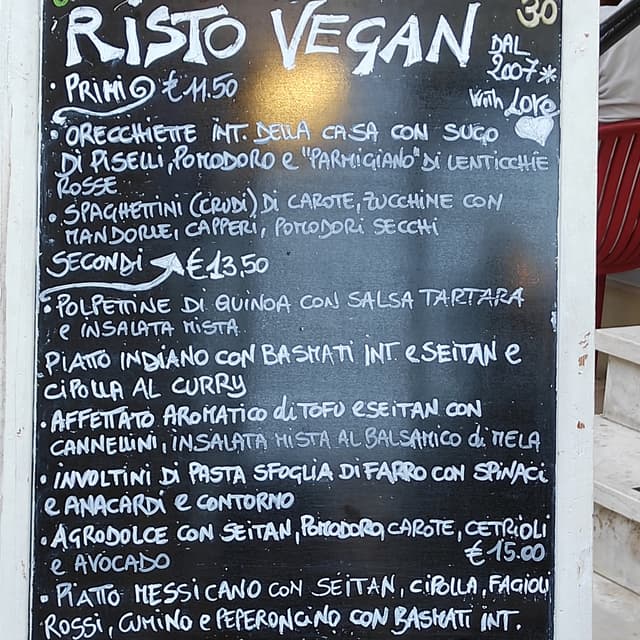 30
RISTO VEGAN
DAL
2007*
With Love
• PRIMI €11.50
• ORECCHIETTE INT. DELLA CASA CON SUGO
DI PISELLI, POMODORO e "PARMIGIANO" DI LENTICCHIE
ROSSE
• SPAGHETTINI (CRUDI) DI CAROTE, ZUCCHINE CON
MANDORLE, CAPPERI, POMODORI SECCHI
SECONDI €13,50
• POLPETTINE DI QUINOA CON SALSA TARTARA
e INSALATA MISTA
PIATTO INDIANO CON BASMATI INT. e SEITAN e
CIPOLLA AL CURRY
• AFFETTATO AROMATICO di TOFU e SEITAN CON
CANNELLINI, INSALATA MISTA AL BALSAMICO di MELA
• INVOLTINI DI PASTA SFOGLIA DI FARRO CON SPINACI
e ANACARDI e CONTORNO
• AGRODOLCE CON SEITAN, POMODORO, CAROTE, CETRIOLI
e AVOCADO €15.00
• PIATTO MESSICANO CON SEITAN, CIPOLLA, FAGIOLI
ROSSI, CUMINO e PEPERONCINO CON BASMATI INT.